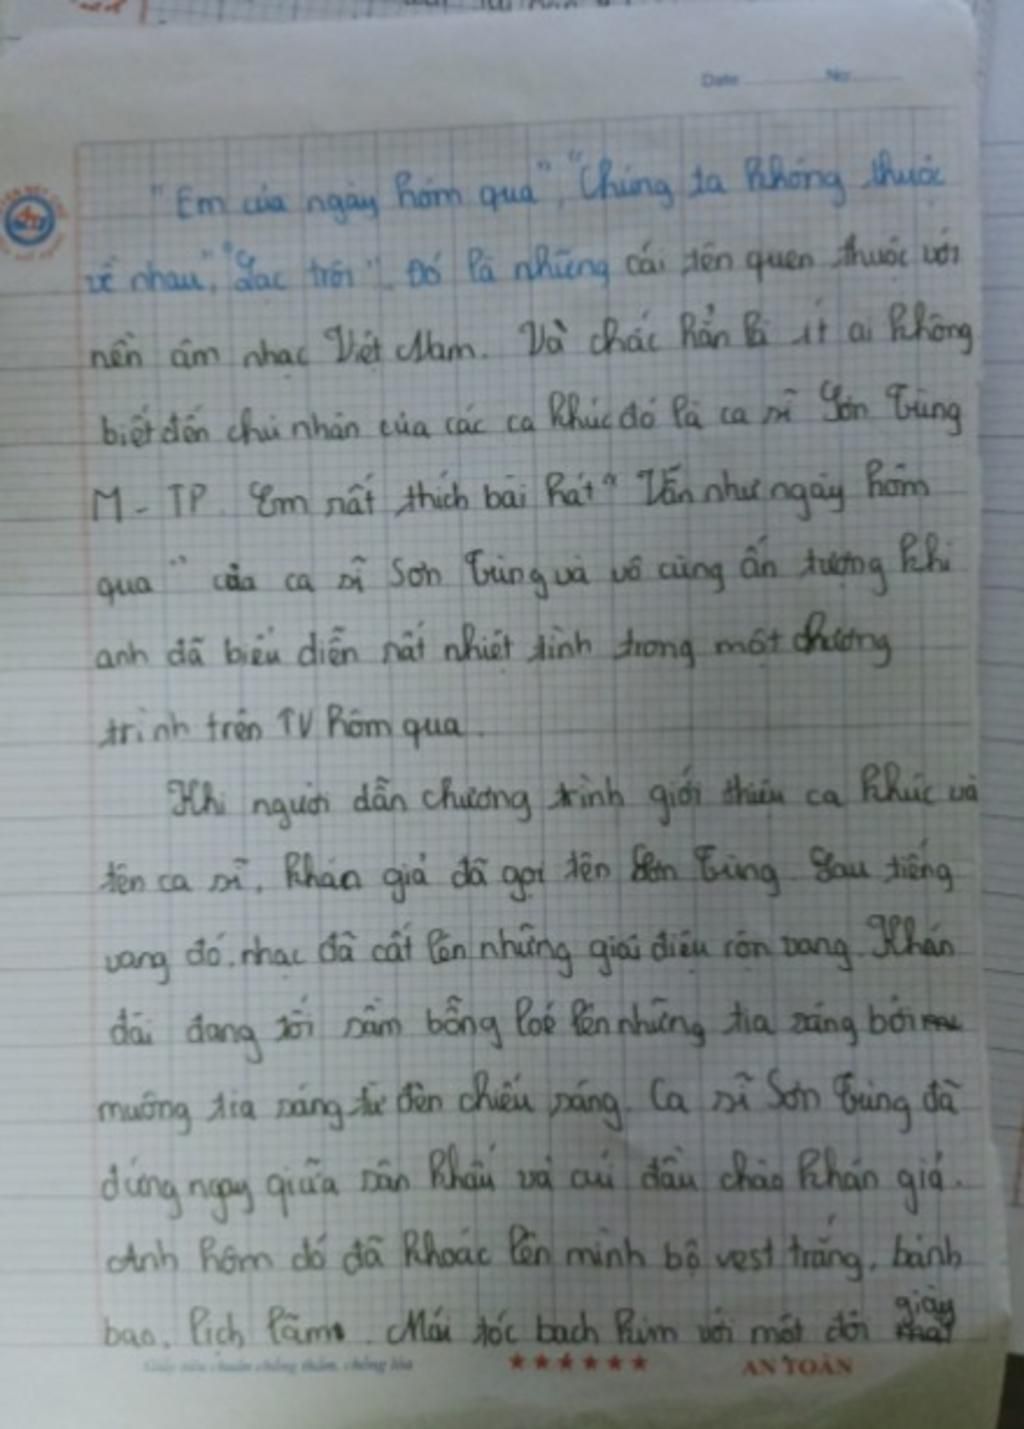 Date No
"Em của ngày hôm qua", "Chúng ta không thuộc
về nhau", "Lạc trôi". Đó là những cái tên quen thuộc với
nền âm nhạc Việt Nam. Và chắc hẳn là ít ai không
biết đến chủ nhân của các ca khúc đó là ca sĩ Sơn Tùng
M-TP. Em rất thích bài hát "Vẫn như ngày hôm
qua" của ca sĩ Sơn Tùng và vô cùng ấn tượng khi
anh đã biểu diễn rất nhiệt tình trong một chương
trình trên TV hôm qua.
Khi người dẫn chương trình giới thiệu ca khúc và
tên ca sĩ, khán giả đã gọi tên Sơn Tùng. Sau tiếng
vang đó, nhạc đã cất lên những giai điệu rộn vang. Khán
đài đang tối sầm bỗng loé lên những tia sáng bởi
muông tia sáng từ đèn chiếu sáng. Ca sĩ Sơn Tùng đã
đứng ngay giữa sân khấu và cúi đầu chào khán giả.
Anh hôm đó đã khoác lên mình bộ vest trắng, bảnh
bao, lịch lãm. Mái tóc bạch kim với một đôi giày
Giấy tiêu chuẩn chống thấm, chống lóa ★★★★★★ AN TOÀN